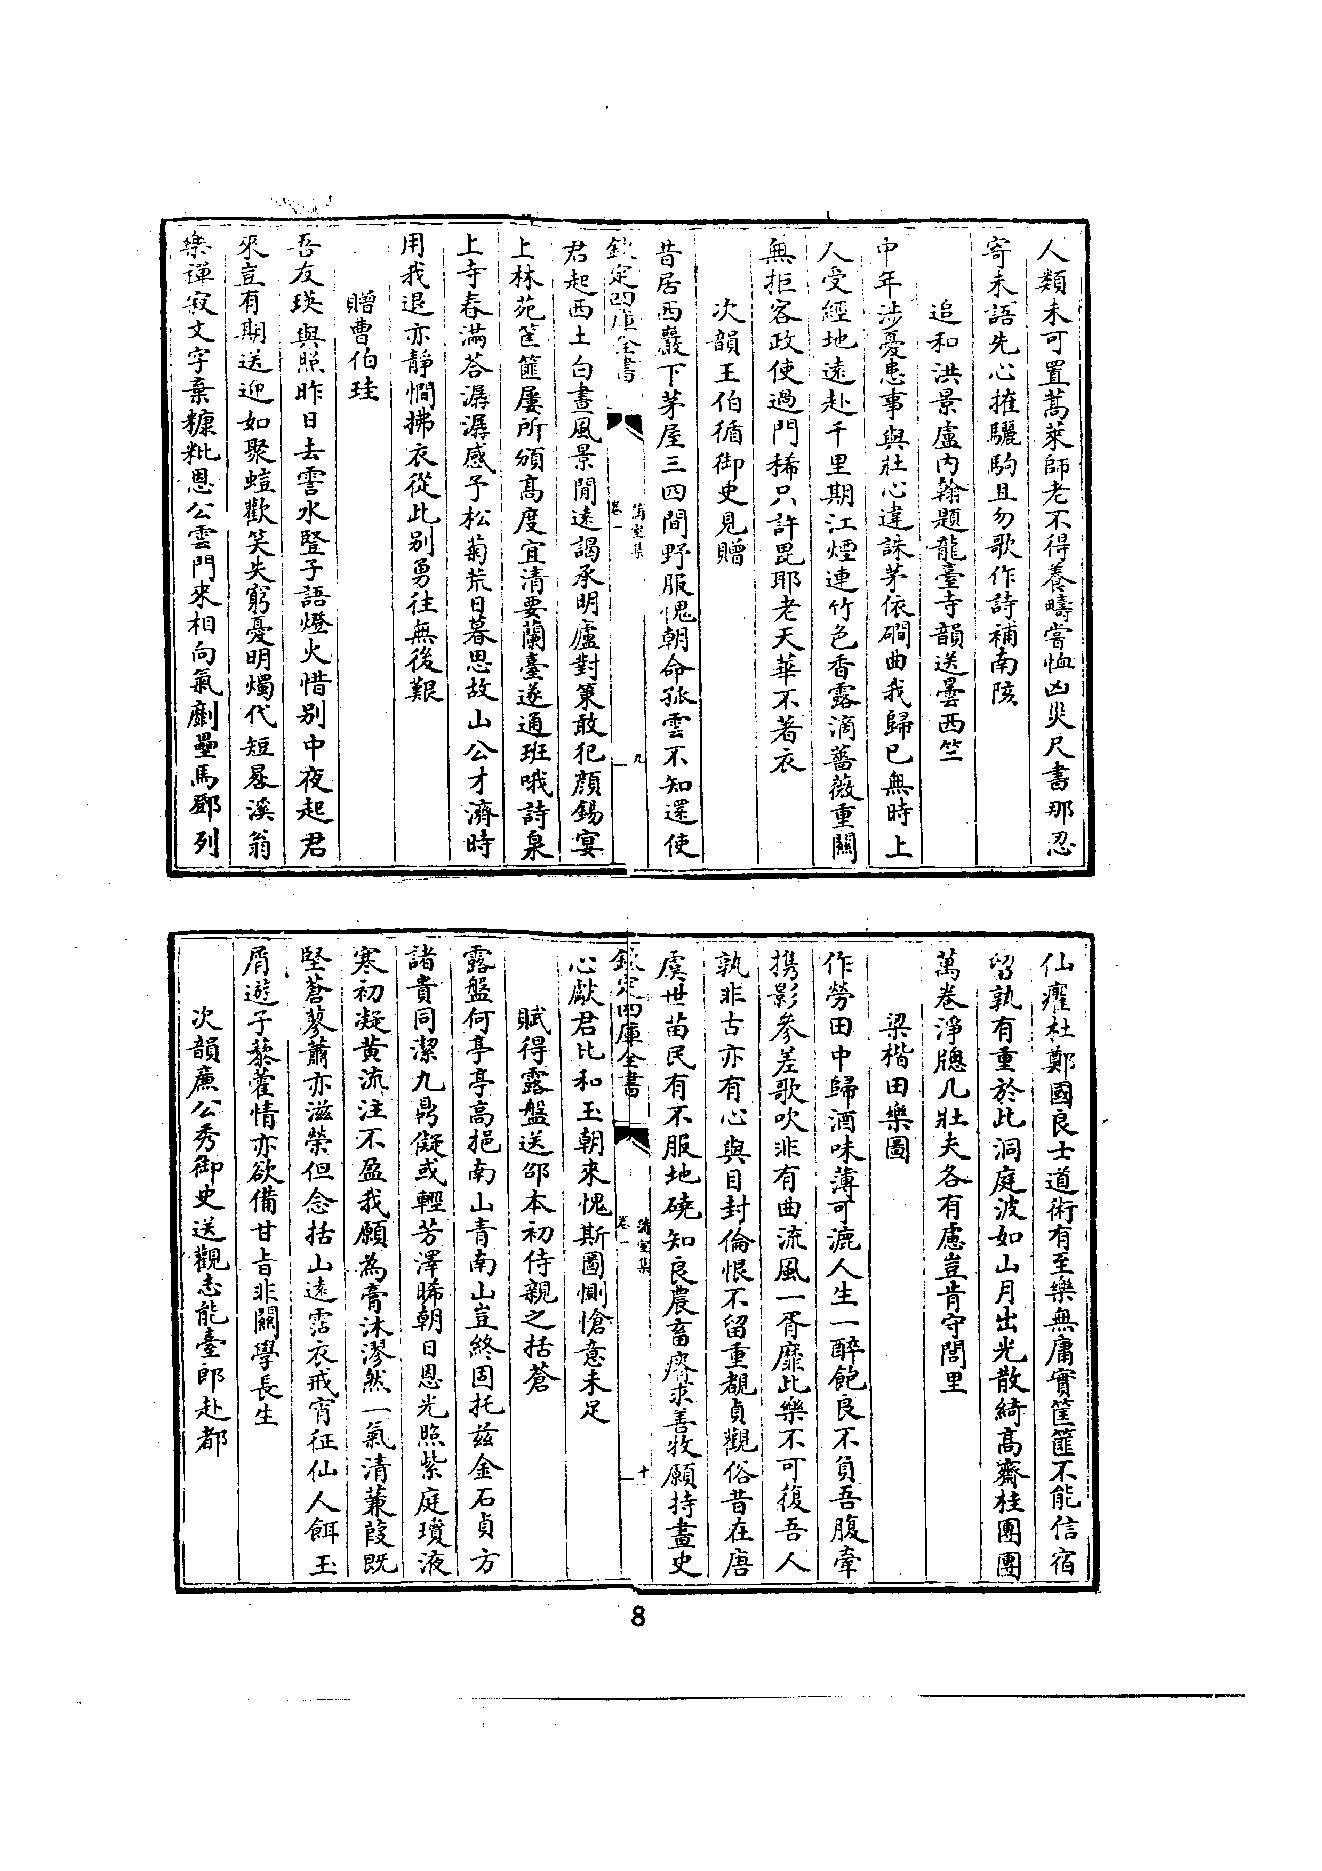 人類未可置蒿萊師老不得養疇嘗恤凶災尺書那忍
寄未語先心摧驪駒且勿歌作詩補南陔
追和洪景盧內翰題龍臺寺韻送曇西竺
中年涉憂患事與壯心違誅茅依磵曲我歸已無時上
人受經地遠赴千里期江煙連竹色香露滴薔薇重關
無拒客政使過門稀只許毘耶老天華不著衣
次韻王伯循御史見贈
昔居西巖下茅屋三四間野服愧朝命孤雲不知還使
欽定四庫全書
蒲室集
卷一
九
君起西土白晝風景閒遠謁承明廬對策敢犯顔錫宴
上林苑筐篚屢所頒高度宜清要蘭臺遂通班哦詩泉
上寺春滿苔潺潺感予松菊荒日暮思故山公才濟時
用我退亦靜憪拂衣從此别勇往無後艱
贈曹伯珪
吾友瑛與照昨日去霅水暨子語燈火惜别中夜起君
來豈有期送迎如聚螘歡笑失窮憂明燭代短晷溪翁
樂禪寂文字棄糠粃恩公雲門來相向氣劘壘馬鄧列
仙癯杜鄭國良士道術有至樂無庸實筐篚不能信宿
留孰有重於此洞庭波如山月出光散綺高齋桂團團
萬卷淨牕几壯夫各有慮豈肯守閭里
梁楷田樂圖
作勞田中歸酒味薄可漉人生一醉飽良不負吾腹牽
携影參差歌吹非有曲流風一胥靡此樂不可復吾人
孰非古亦有心與目封倫恨不留重覩貞觀俗昔在唐
虞世苗民有不服地磽知良農畜瘠求善牧願持畫史
欽定四庫全書
蒲室集
卷一
十
心獻君比和玉朝來愧斯圖惻愴意未足
賦得露盤送邵本初侍親之括蒼
露盤何亭亭高挹南山青南山豈終固托兹金石貞方
諸貴同潔九鼎儗或輕芳澤晞朝日恩光照紫庭瓊液
寒初凝黄流注不盈我願為膏沐漻然一氣清蒹葭既
堅蒼蓼蕭亦滋榮但念括山遠霑衣戒宵征仙人餌玉
屑遊子藜藿情亦欲備甘旨非關學長生
次韻廉公秀御史送觀志能臺郎赴都
8